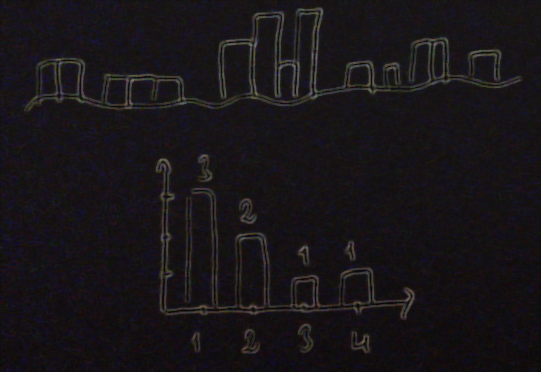 3
2
1 1
1 2 3 4